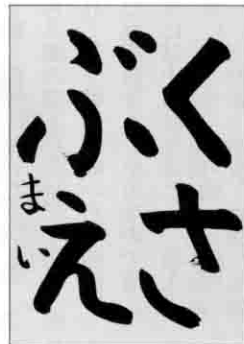 くさ
ぶえ
まい